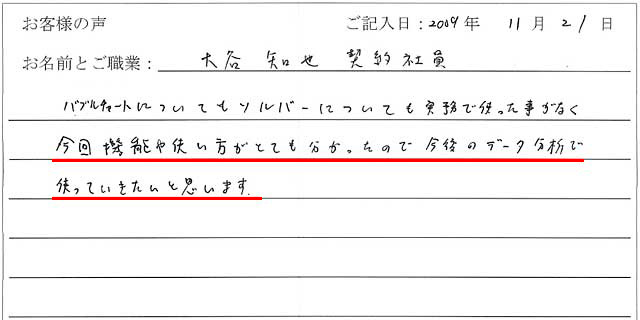 お客様の声 ご記入日：2009年 11月 21日
お名前とご職業： 大谷 知也 契約社員
バブルチャートについてもソルバーについても実務で使った事がなく
今回機能や使い方がとても分かったので今後のデータ分析で
使っていきたいと思います。